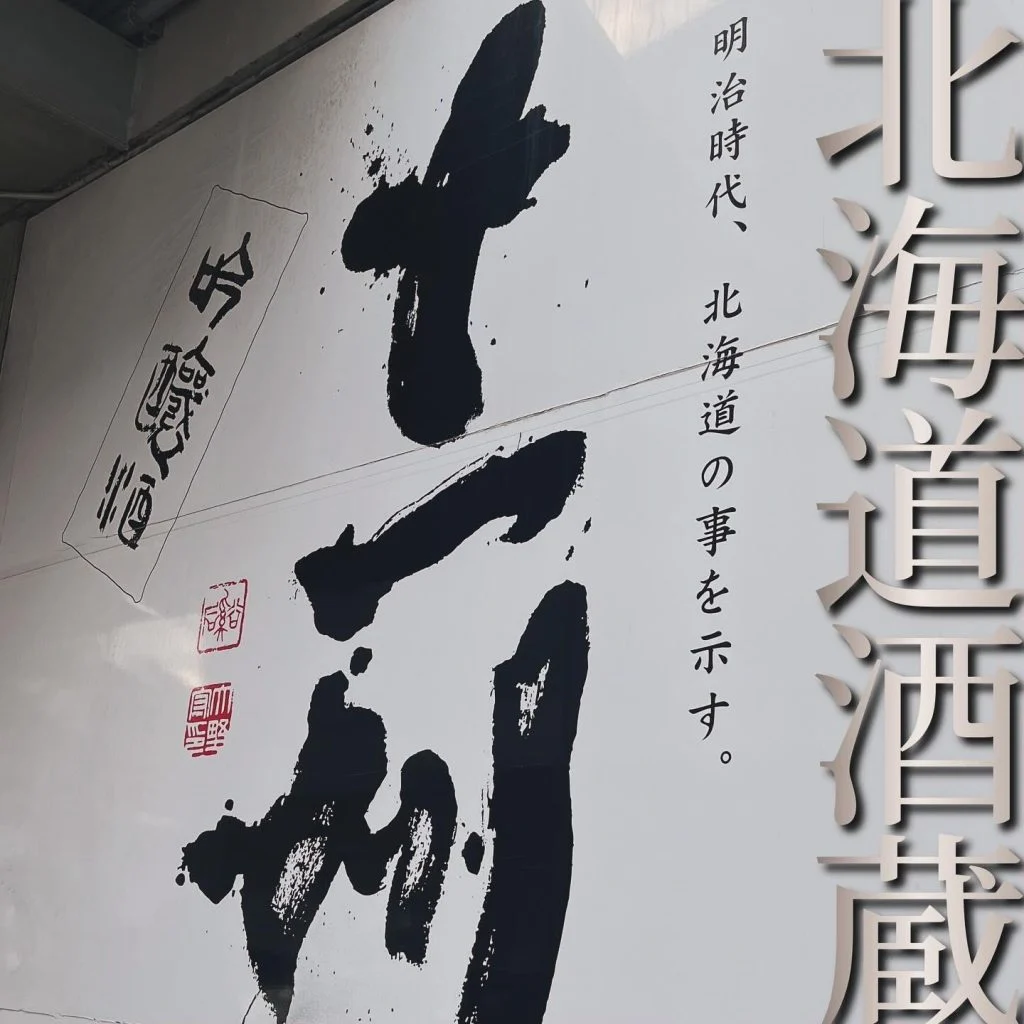 北海道酒蔵
明治時代、北海道の事を示す。
十一州
吟醸酒